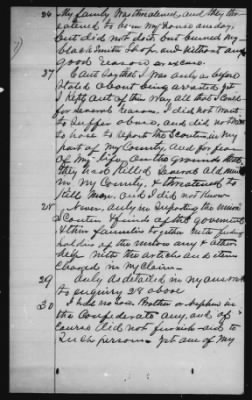 26 My family was threatened, and they threatened to burn my house and any
but did not do it but burned my
black smith shop and without any
good reason or excuse.
27 Cant say that I was only as before
stated about being arrested yet
I kept out of the way all that I could
for several reasons. I did not want
to suffer abuse, and did not want
to have to report the Scouts in my
part of my County, and for fear
of my life, on the grounds that
they had killed several old men
in my County, & threatened to
kill more, and I did not know
28 Never, only in supporting the Union
Scouts & friends of the Government
& their families together with feeding
soldiers of the union army & other
help with the articles and items
charged in my Claim.
29 Only as detailed in my answer
to enquiry 28 above
30 I had no Son, Brother or nephew in
the Confederate army, and of
course did not furnish aid to
such persons. yet one of my